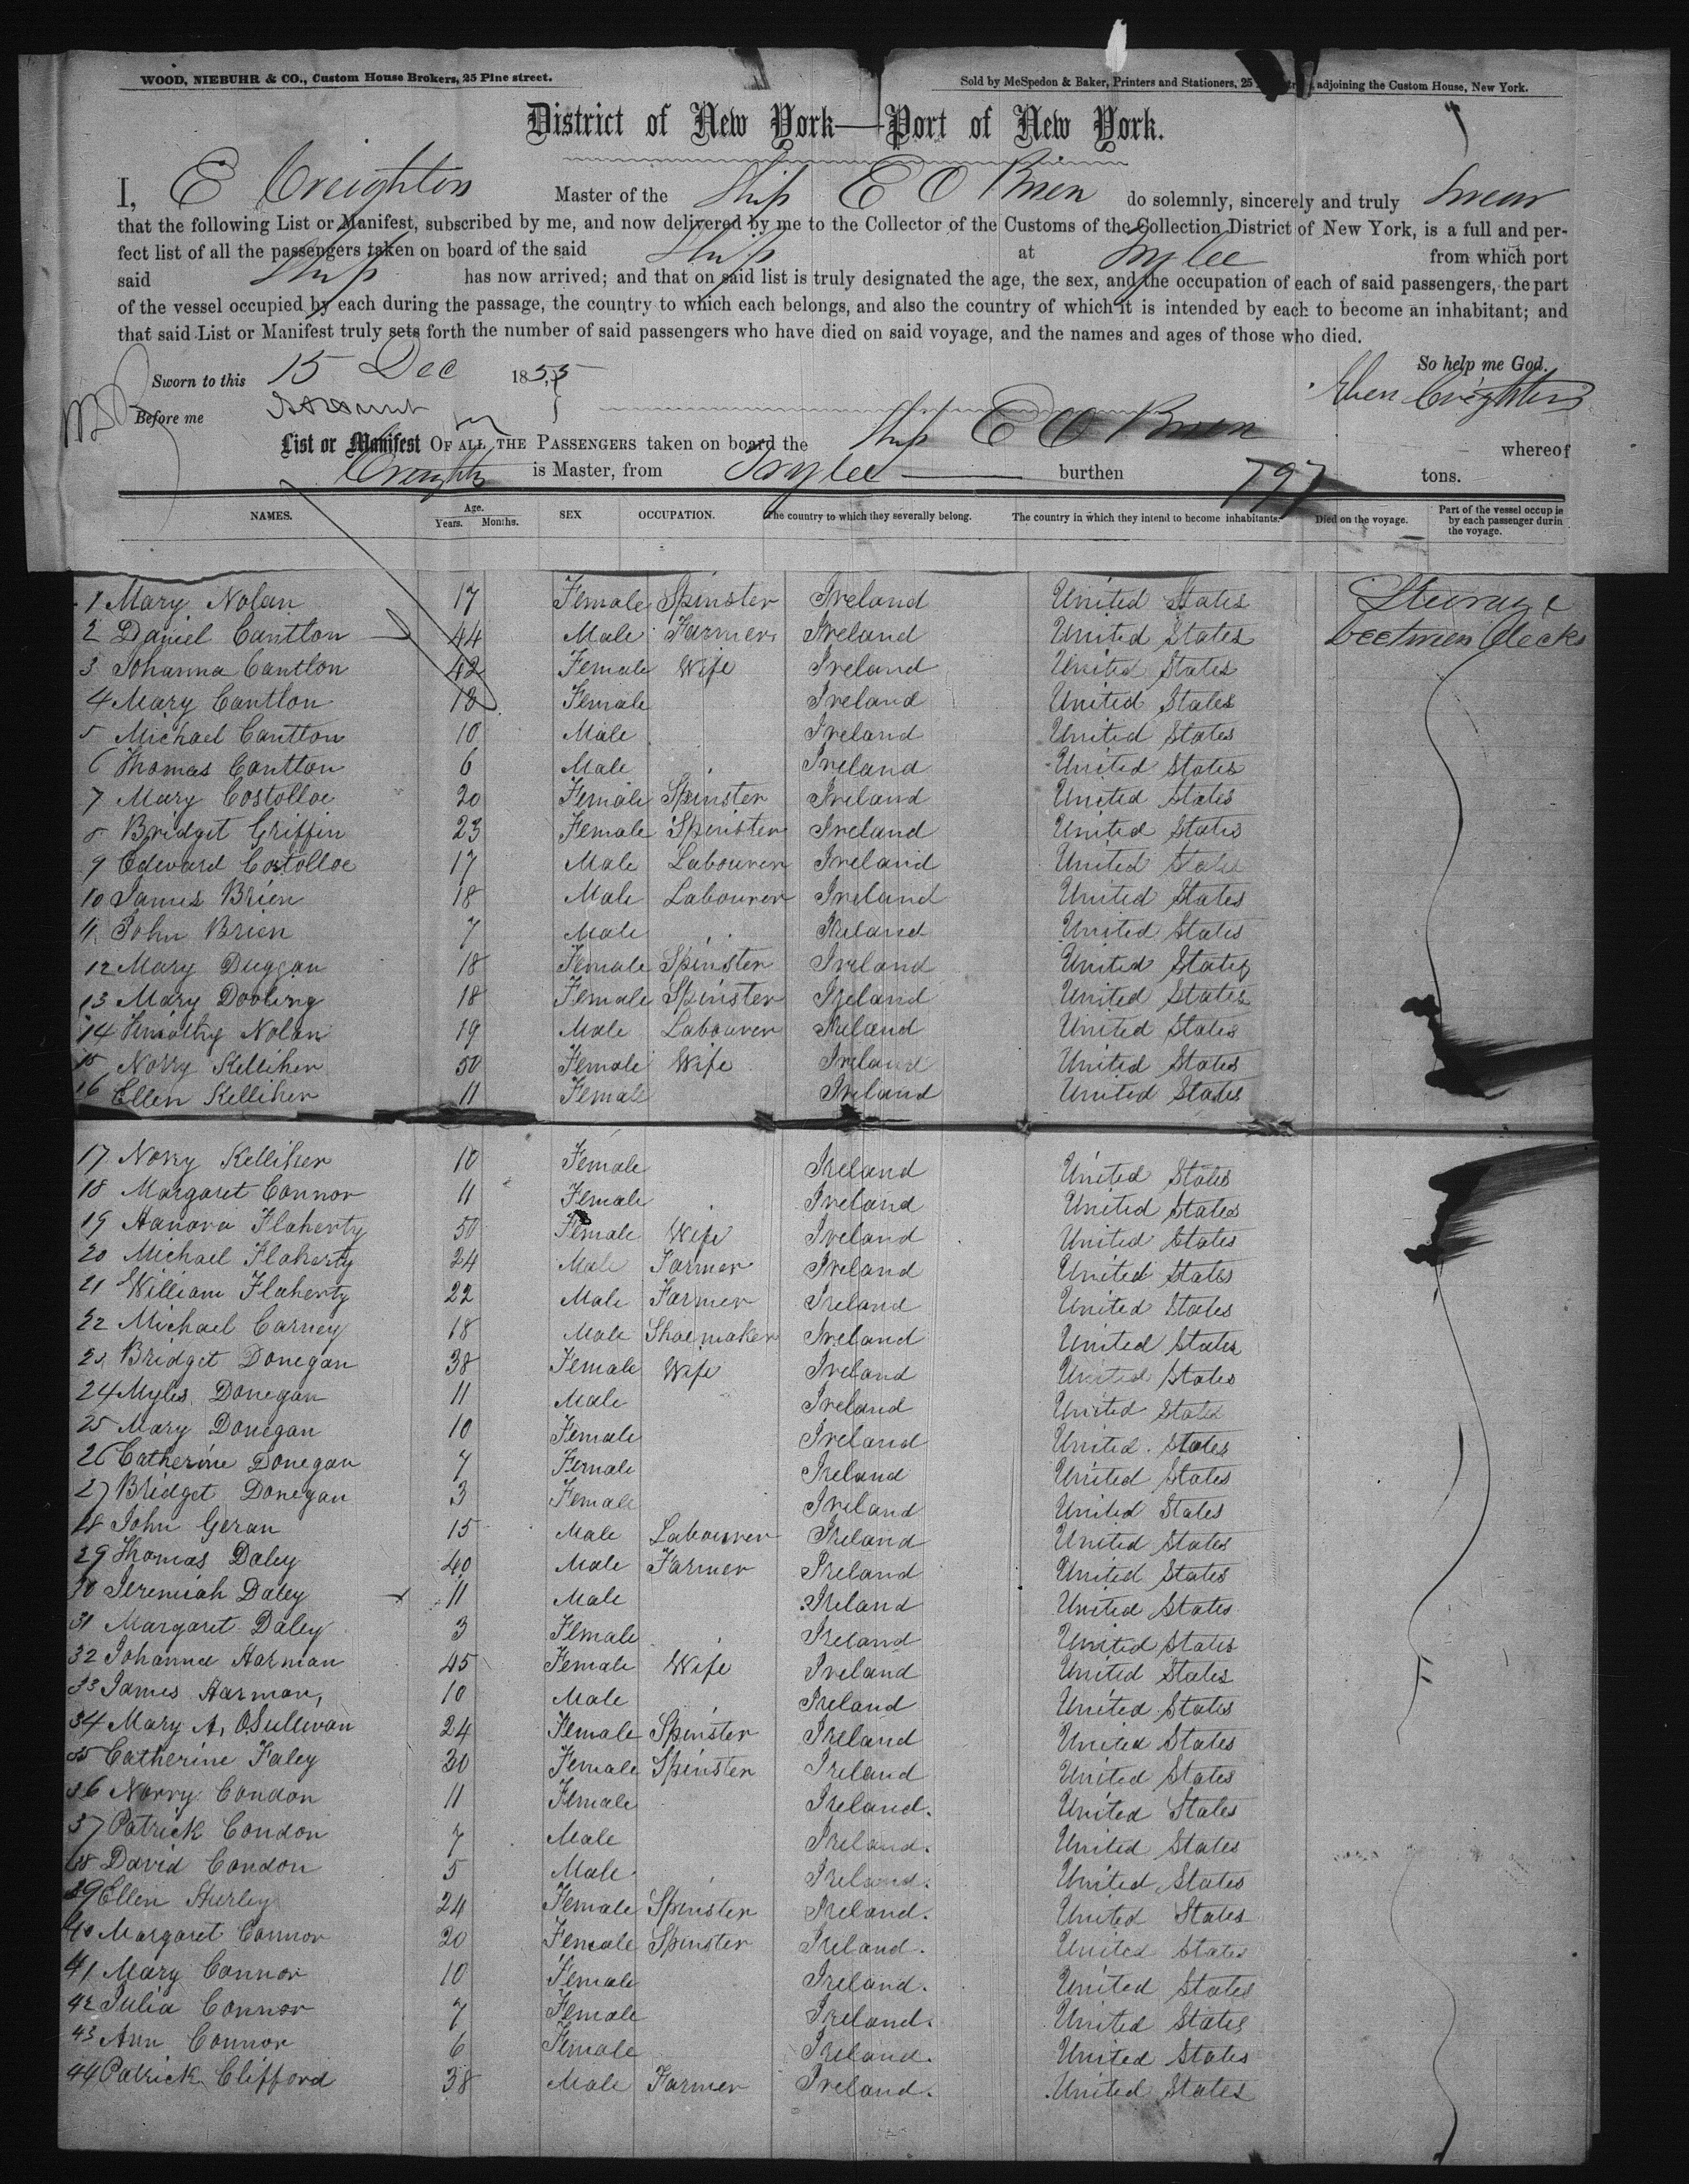 WOOD, NIEBUHR & CO., Custom House Brokers, 25 Pine street.
Sold by McSpedon & Baker, Printers and Stationers, 25 adjoining the Custom House, New York.
District of New York—Port of New York.
I, E Creighton Master of the Ship E O Brien do solemnly, sincerely and truly swear
that the following List or Manifest, subscribed by me, and now delivered by me to the Collector of the Customs of the Collection District of New York, is a full and per-
fect list of all the passengers taken on board of the said Ship at Tralee from which port
said Ship has now arrived; and that on said list is truly designated the age, the sex, and the occupation of each of said passengers, the part
of the vessel occupied by each during the passage, the country to which each belongs, and also the country of which it is intended by each to become an inhabitant; and
that said List or Manifest truly sets forth the number of said passengers who have died on said voyage, and the names and ages of those who died.
So help me God.
Sworn to this 15 Dec 1855
Eben Creighton
Before me
List or Manifest OF ALL THE PASSENGERS taken on board the Ship E O Brien whereof
Creighton is Master, from Tralee burthen 797 tons.
NAMES. Age. Years. Months. SEX OCCUPATION. The country to which they severally belong. The country in which they intend to become inhabitants. Died on the voyage. Part of the vessel occupie by each passenger durin the voyage.
1 Mary Nolan 17 Female Spinster Ireland United States Steerage
2 Daniel Cantlon 44 Male Farmer Ireland United States beetween decks
3 Johanna Cantlon 42 Female Wife Ireland United States
4 Mary Cantlon 13 Female Ireland United States
5 Michael Cantlon 10 Male Ireland United States
6 Thomas Cantlon 6 Male Ireland United States
7 Mary Costolloe 20 Female Spinster Ireland United States
8 Bridget Griffin 23 Female Spinster Ireland United States
9 Edward Costolloe 17 Male Labourer Ireland United State
10 James Brien 18 Male Labourer Ireland United States
11 John Brien 7 Male Ireland United States
12 Mary Duggan 18 Female Spinster Ireland United States
13 Mary Dooling 18 Female Spinster Ireland United States
14 Timothy Nolan 19 Male Labourer Ireland United States
15 Norry Kelliher 50 Female Wife Ireland United States
16 Ellen Kelliher 11 Female Ireland United States
17 Norry Kelliher 10 Female Ireland United States
18 Margaret Connor 11 Female Ireland United States
19 Hanora Flaherty 50 Female Wife Ireland United States
20 Michael Flaherty 24 Male Farmer Ireland United States
21 William Flaherty 22 Male Farmer Ireland United States
22 Michael Carney 18 Male Shoemaker Ireland United States
23 Bridget Donegan 38 Female Wife Ireland United States
24 Myles Donegan 11 Male Ireland United States
25 Mary Donegan 10 Female Ireland United States
26 Catherine Donegan 7 Female Ireland United States
27 Bridget Donegan 3 Female Ireland United States
28 John Geran 15 Male Labourer Ireland United States
29 Thomas Daley 40 Male Farmer Ireland United States
30 Jeremiah Daley 11 Male Ireland United States
31 Margaret Daley 3 Female Ireland United States
32 Johanna Harman 45 Female Wife Ireland United States
33 James Harman, 10 Male Ireland United States
34 Mary A, OSullivan 24 Female Spinster Ireland United States
35 Catherine Faley 30 Female Spinster Ireland United States
36 Norry Condon 11 Female Ireland. United States
37 Patrick Condon 7 Male Ireland. United States
38 David Condon 5 Male Ireland. United States
39 Ellen Hurley 24 Female Spinster Ireland. United States
40 Margaret Connor 20 Female Spinster Ireland. United States
41 Mary Connor 10 Female Ireland. United States
42 Julia Connor 7 Female Ireland. United States
43 Ann Connor 6 Female Ireland. United States
44 Patrick Clifford 38 Male Farmer Ireland. United States